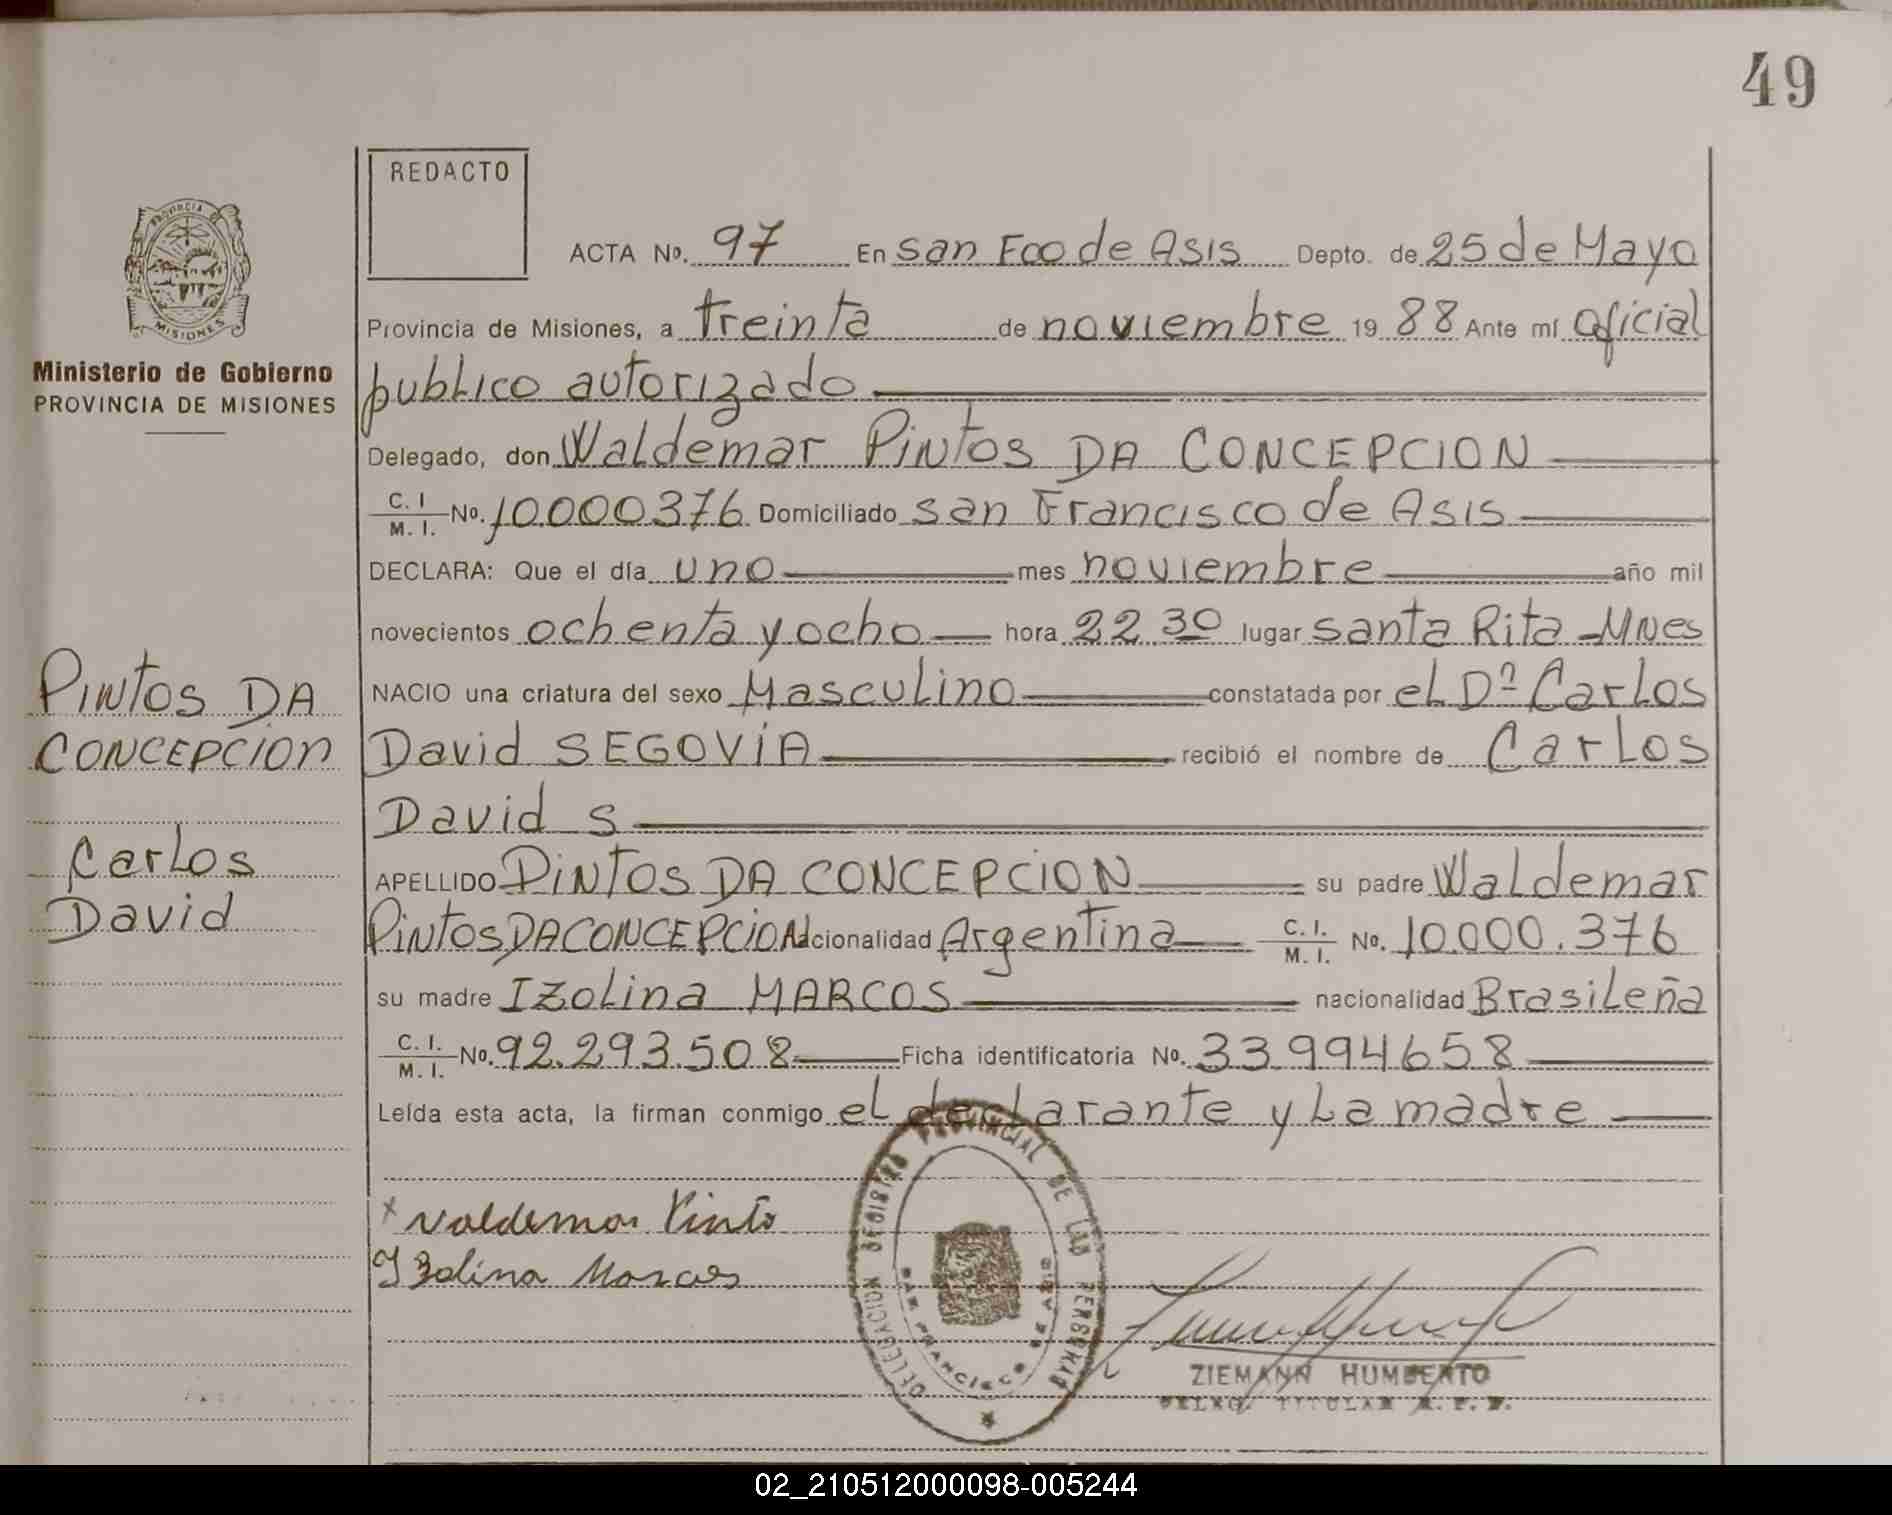 49
REDACTO
ACTA Nº. 97 En San Fco de Asis Depto. de 25 de Mayo
Provincia de Misiones, a treinta de noviembre 19 88 Ante mí oficial
publico autorizado
Delegado, don Waldemar Pintos DA CONCEPCION
C. I. M. I. Nº. 10000376 Domiciliado San Francisco de Asis
DECLARA: Que el día uno mes noviembre año mil
novecientos ochenta y ocho hora 22 30 lugar santa Rita - Mnes
NACIO una criatura del sexo Masculino constatada por el Dº Carlos
David SEGOVIA recibió el nombre de Carlos
David S
APELLIDO PINTOS DA CONCEPCION su padre Waldemar
Pintos DA CONCEPCION Nacionalidad Argentina C. I. M. I. Nº. 10.000.376
su madre Izolina MARCOS nacionalidad Brasileña
C. I. M. I. Nº. 92.293.508 Ficha identificatoria Nº. 33994658
Leída esta acta, la firman conmigo el declarante y La madre
x Valdemar Pinto
Izolina Marcos
PROVINCIA DE MISIONES
Ministerio de Gobierno
PROVINCIA DE MISIONES
Pintos DA
CONCEPCION
Carlos
David
DELEGACION REGISTRO PROVINCIAL DE LAS PERSONAS
SAN FRANCISCO DE ASIS
ZIEMANN HUMBERTO
DELEG. TITULAR R. P. P.
02_210512000098-005244